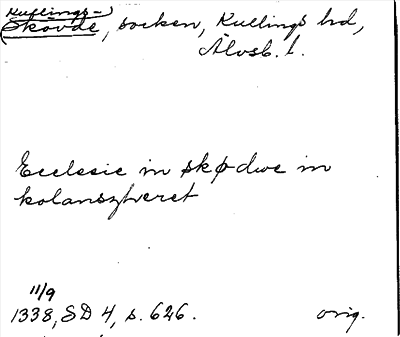 (Kullings-)
Skövde, socken, Kullings hd,
Älvsb. l.
Ecclesie in skødwe in
kolanszhæret
11/9
1338, SD 4, s. 626. orig.